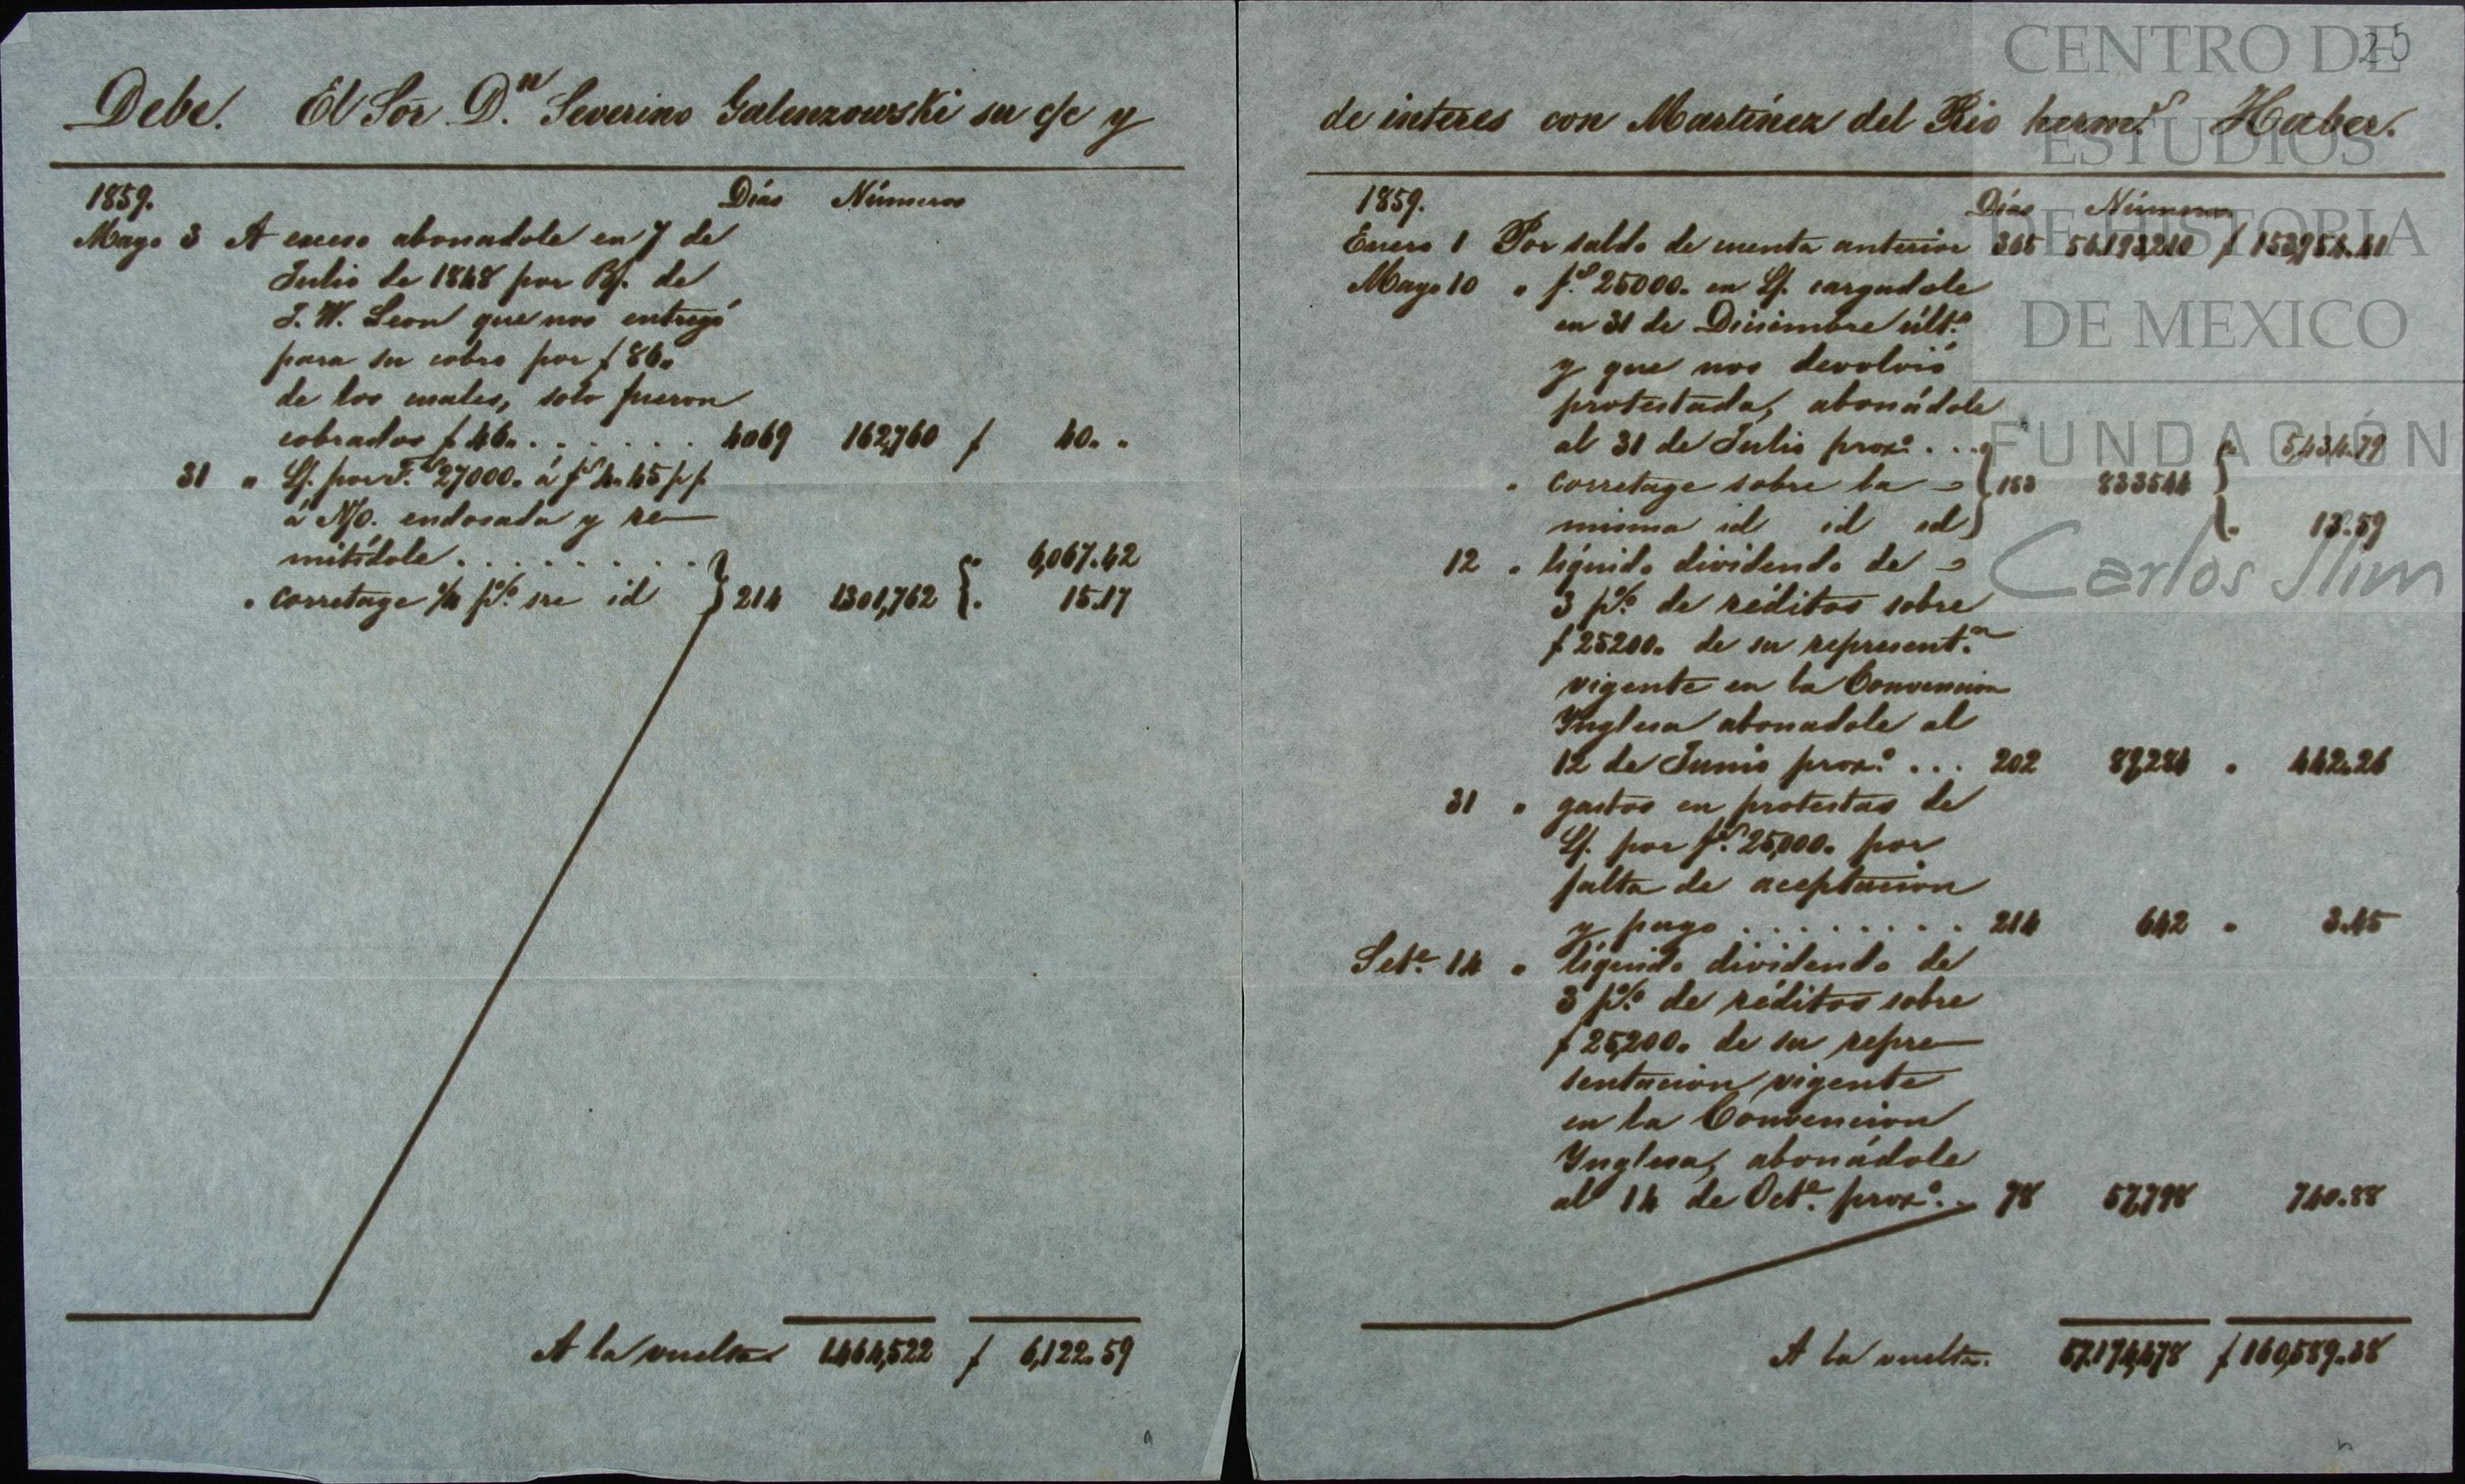 Debe. El Sor. D.n Severino Galenzowski su c/c y
1859. Días Números
Mayo 3 A exceso abonadole en 7 de
Julio de 1848 por de
J. W. Leon que nos entregó
para su cobro por $ 86.
de los cuales, solo fueron
cobrados $ 46. . . . . . . 4069 162,760 $ 40. "
31 " L/. por F. 27000. á $ 4.45 p f
á N/o. endosada y re
mitídole . . . . . . . . .
" corretage 1/4 p%. sre id } 214 1.301,762 { " 6,067.42
" 15.17
A la vuelta 1.464,522 $ 6,122.59
25
de interes con Martínez del Rio herm.s Haber.
1859. Días Números
Enero 1 Por saldo de cuenta anterior 365 56.193,210 $ 153,954.41
Mayo 10 " f.s 25000. en L/. cargadole
en 31 de Diciembre últ.o
y que nos devolvió
protestada, abonádole
al 31 de Julio prox.o . . . { 5,434.79
" corretage sobre la } 153 833544
misma id id id " 13.59
12 " líquido dividendo de
3 p%. de réditos sobre
$ 25200. de su represent.n
vigente en la Convencion
Ynglesa abonadole al
12 de Junio prox.o . . . 202 89,284 " 442.26
31 " gastos en protestas de
L/. por f.s 25,000. por
falta de aceptacion
y pago . . . . . . . . . 214 642 " 3.45
Set.e 14 " líquido dividendo de
3 p%. de réditos sobre
$ 25,200. de su repre
sentacion vigente
en la Convencion
Ynglesa, abonádole
al 14 de Oct.e prox.o . . 78 57,798 740.88
A la vuelta. 57.174,478 $ 160,589.38
CENTRO DE
ESTUDIOS
DE HISTORIA
DE MEXICO
FUNDACIÓN
Carlos Slim